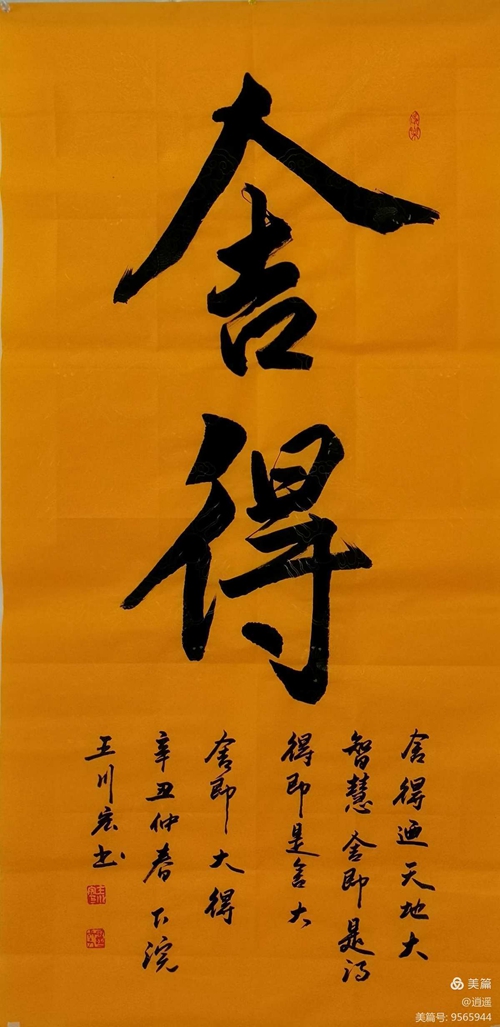 舍得
舍得遍天地大
智慧舍即是得
得即是舍大
舍即大得
辛丑仲春下浣
王川宏书
美篇
@逍遥
美篇号: 9565944